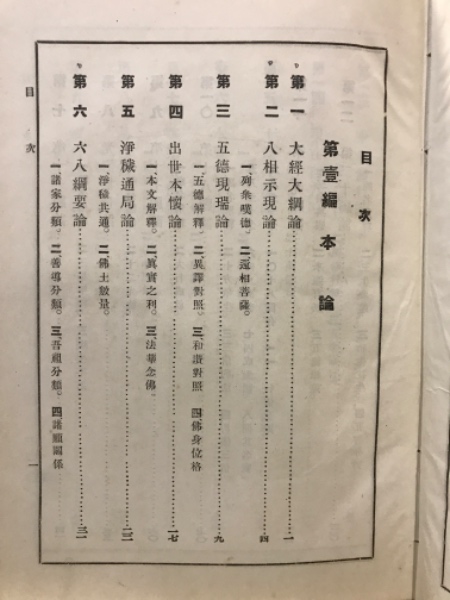 目次
第壹編 本論
第一 大經大綱論……一
第二 八相示現論……四
一、列衆嘆德。二、還相菩薩。
第三 五德現瑞論……九
一、五德解釋。二、異譯對照。三、和讃對照 四、佛身位格
第四 出世本懷論……一七
一、本文解釋。二、眞實之利。三、法華念佛。
第五 淨穢通局論……二三
一、淨穢共通。二、佛土數量。
第六 六八綱要論……三一
一、諸家分類。二、善導分類。三、吾祖分類。四、諸願關係
目次
一